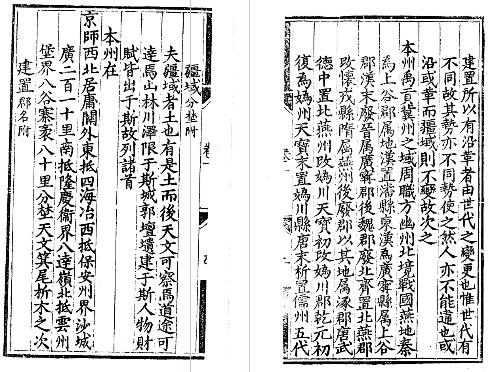 建置所以有沿革者由世代之變更也惟世代有
不同故其勢亦不同勢使之然人亦不能違也或
沿或革而疆域則不變故次之
本州禹貢冀州之域周職方幽州北境戰國燕地秦
為上谷郡屬地漢置潘縣東漢為廣甯縣屬上谷
郡漢末廢晉屬廣甯郡後魏郡廢北齊置北燕郡
改懷戎縣隋屬燕州後廢郡以其地屬涿郡唐武
德中置北燕州改媯川天寶初改媯川郡乾元初
復為媯州天寶末置媯川縣唐末析置儒州五代
疆域分埜附
夫疆域者土也有是土而後天文可察焉道途可
達焉山林川澤限于斯城郭壇壝建于斯人物財
賦皆出于斯故列諸首
本州在
京師西北居庸關外東抵四海冶西抵保安州界沙城
廣二百一十里南抵隆慶衛界八達嶺北抵雲州
堡界八谷寨袤八十里分埜天文箕尾析木之次
建置郡名附